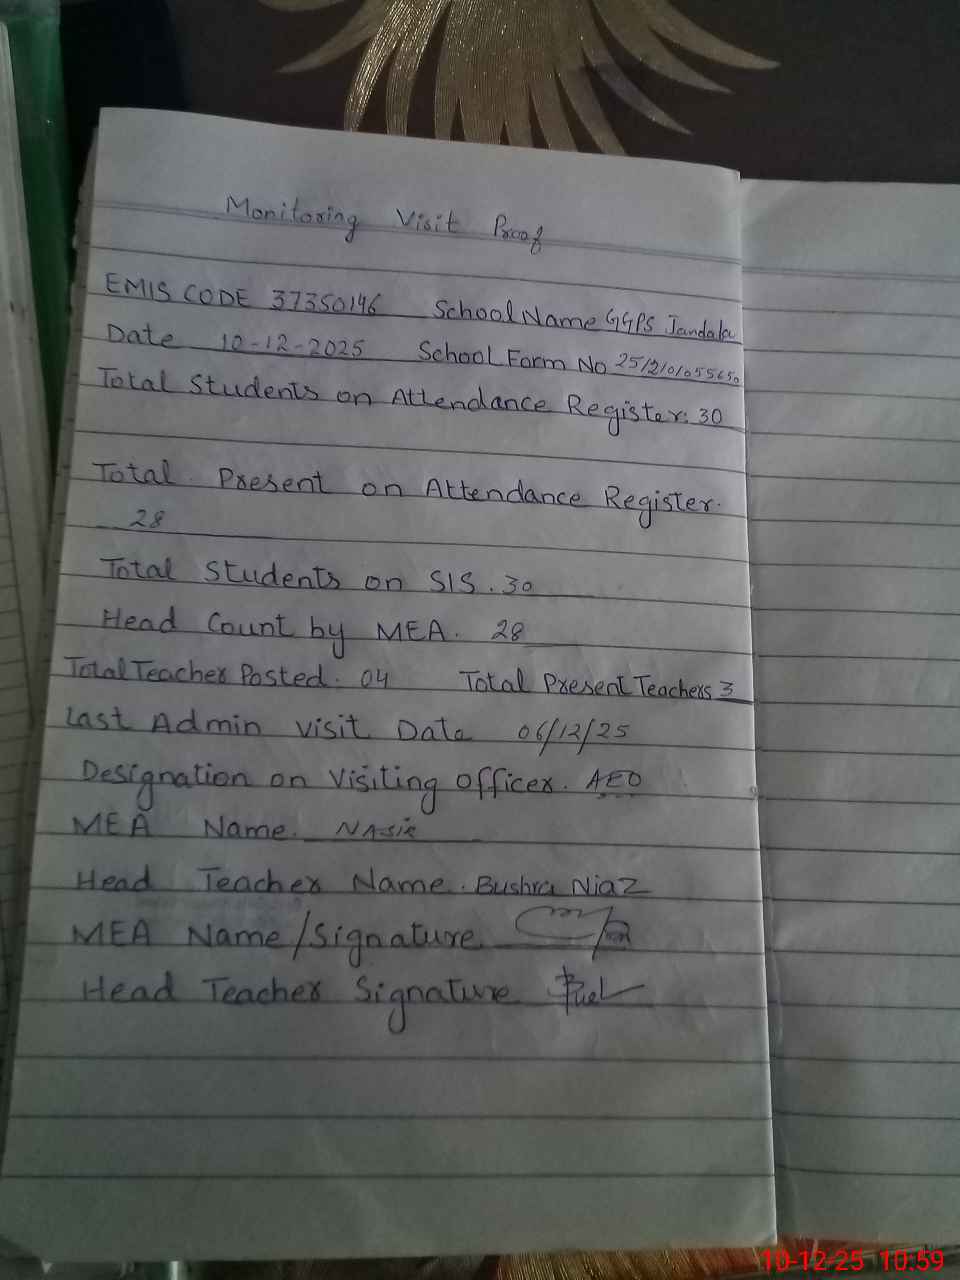 Monitoring Visit Proof
EMIS CODE 37350146 School Name GGPS Jandala
Date 10-12-2025 School Form No
Total Students on Attendance Register. 30
Total Present on Attendance Register.
28
Total Students on SIS. 30
Head Count by MEA. 28
Total Teacher Posted. 04 Total Present Teachers 3
Last Admin visit Date 06/12/25
Designation on Visiting officer. AEO
MEA Name. NASIR
Head Teacher Name. Bushra Niaz
MEA Name/Signature
Head Teacher Signature
10-12-25 10:59